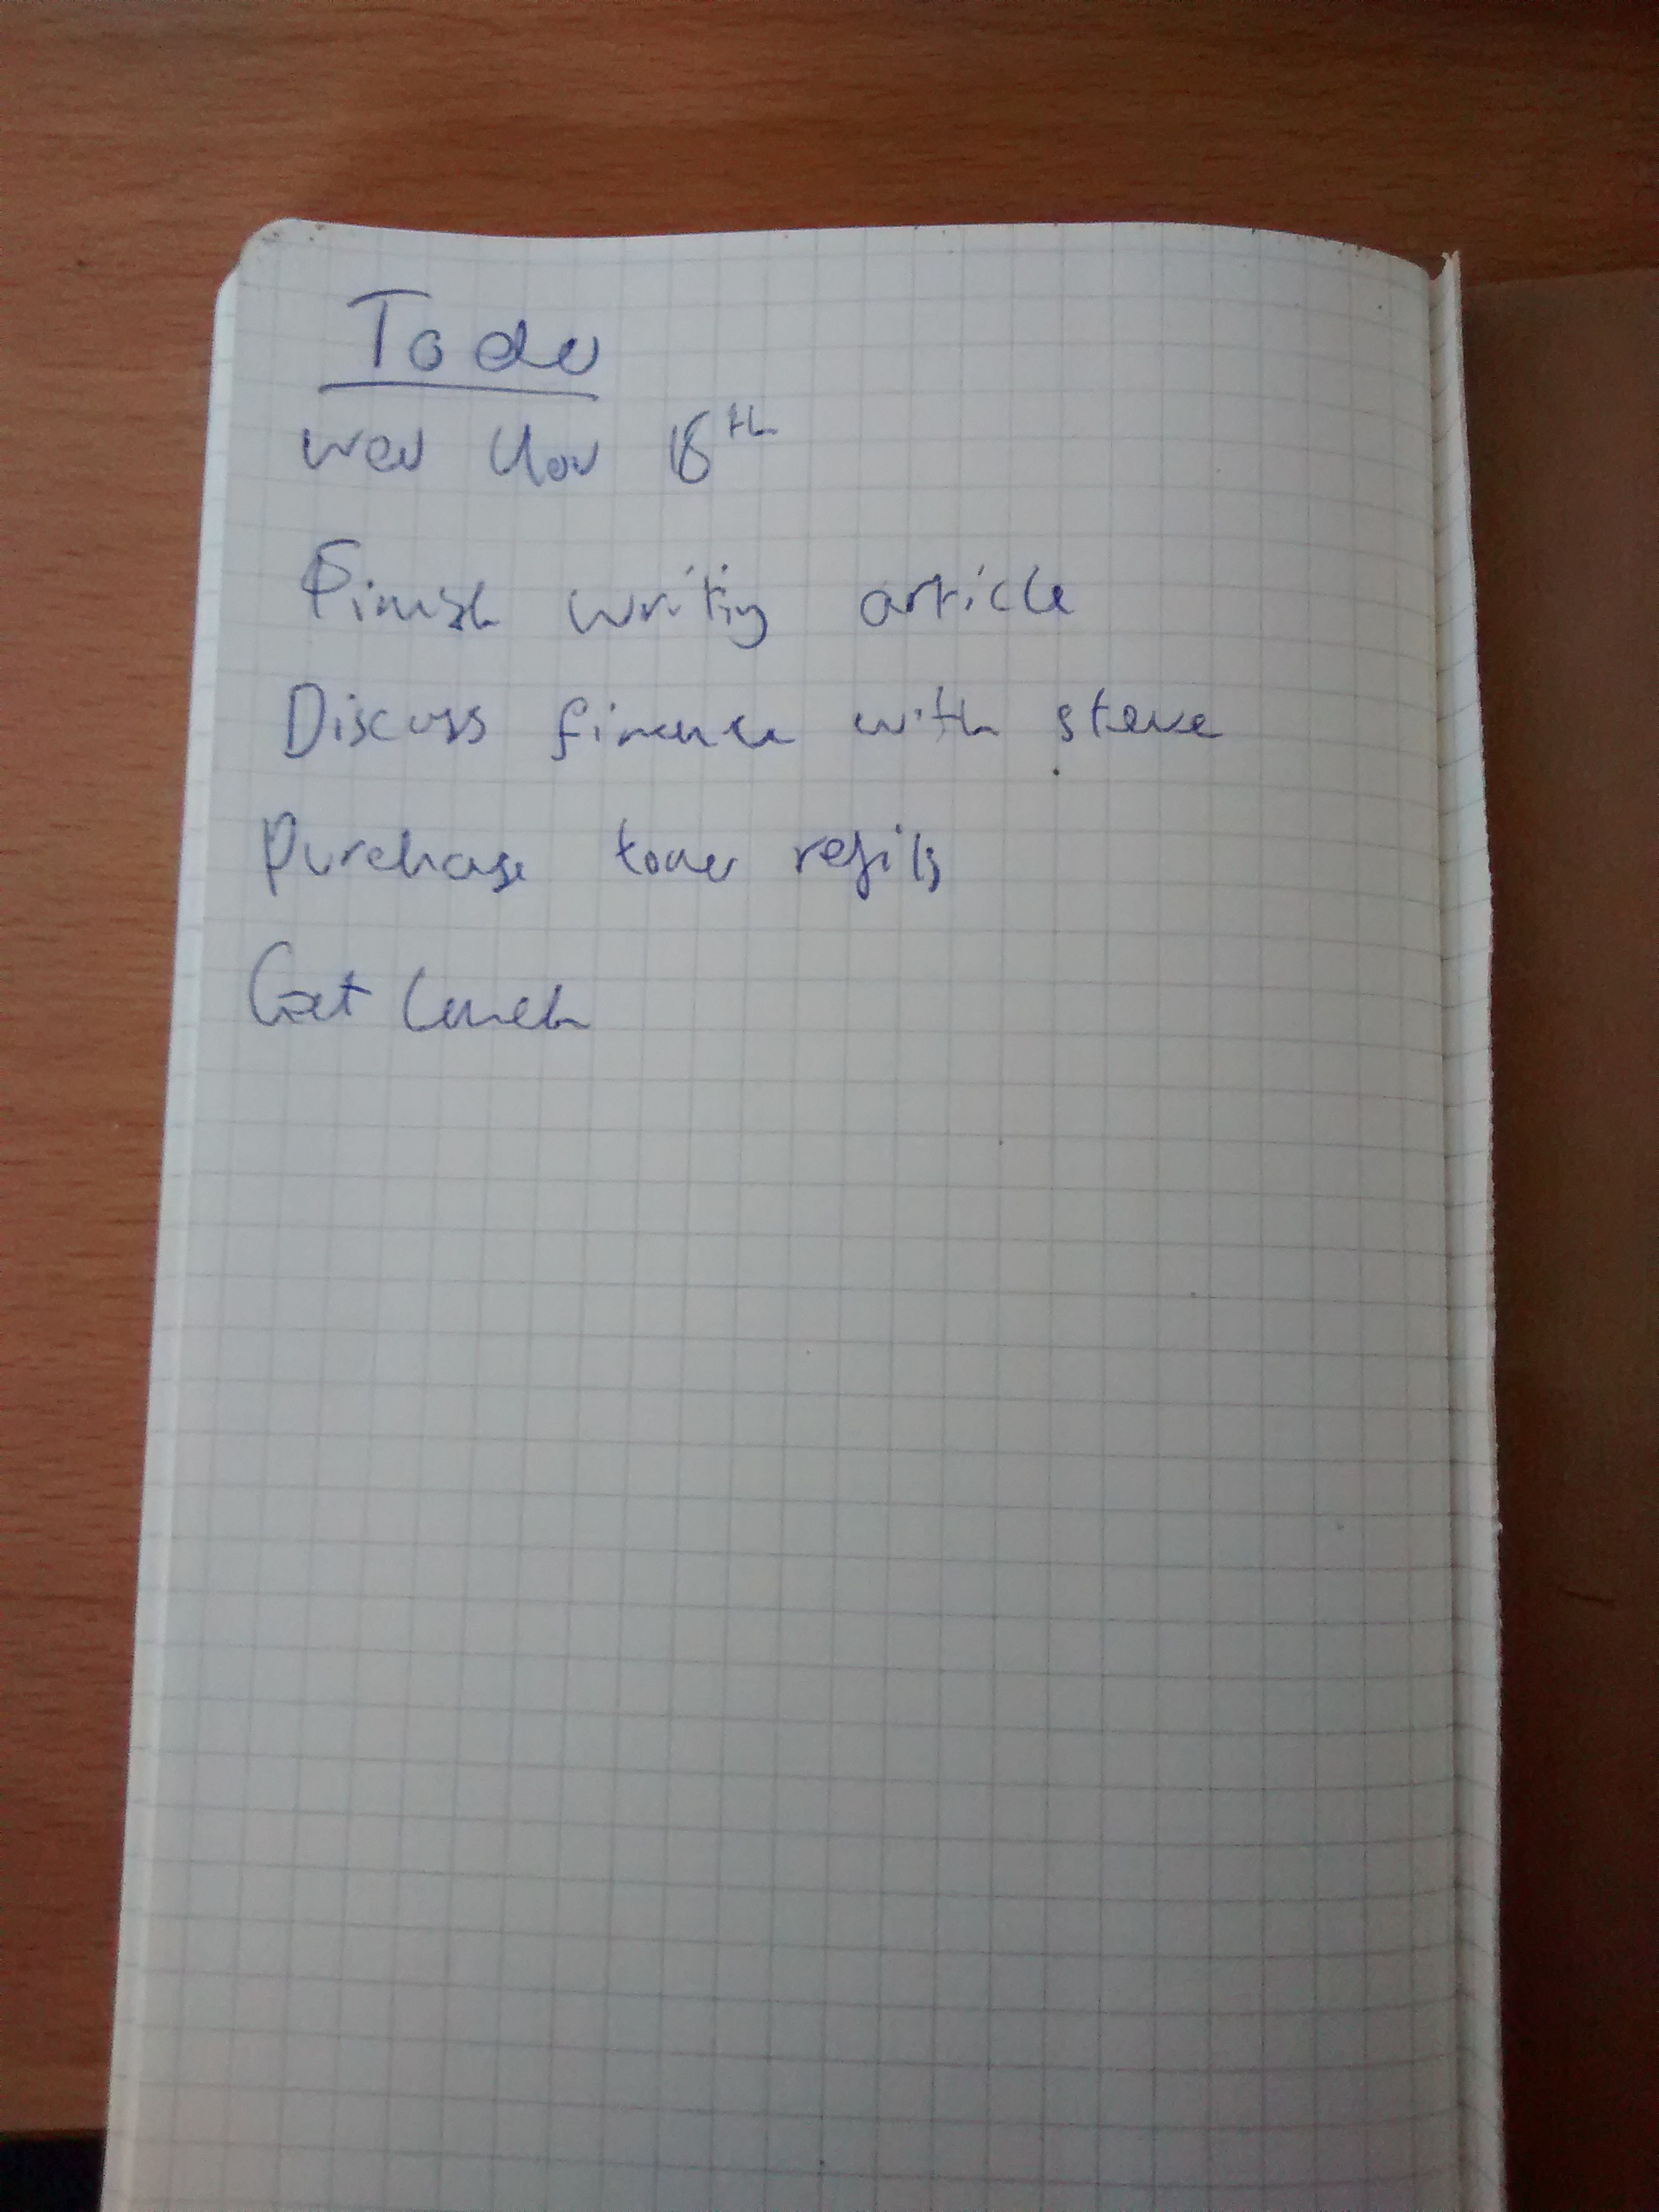 To do
Wed Nov 18th
Finish writing article
Discuss finance with steve
Purchase toner refils
Get lunch